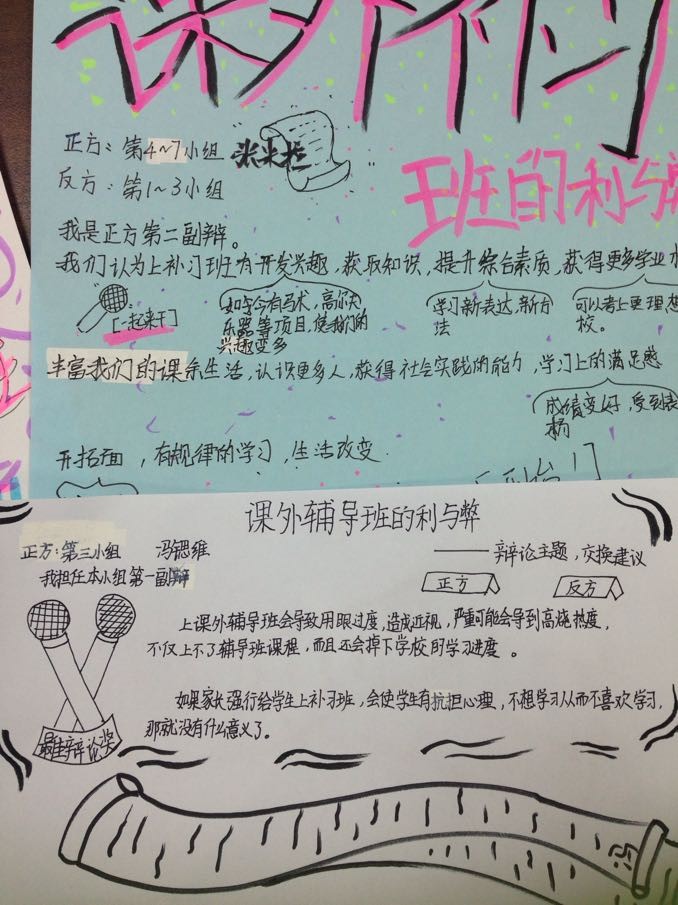 课外补习
班的利与弊
正方：第4~7小组
反方：第1~3小组
我是正方第二副辩。
我们认为上补习班有开发兴趣，获取知识，提升综合素质，获得更多学业水
[一起来干]
如今有马术，高尔夫
乐器等项目，使我们的
兴趣变多
学习新表达，新方
法
可以考上更理想
校。
丰富我们的课余生活，认识更多人，获得社会实践的能力，学习上的满足感
成绩变好，受到表
扬
开拓面，有规律的学习，生活改变.
课外辅导班的利与弊
正方：第三小组 冯锶维
——辩论主题，交换建议
我担任本小组第一副辩
正方 反方
上课外辅导班会导致用眼过度，造成近视，严重可能会导到高烧热度，
不仅上不了辅导班课程，而且还会掉下学校的学习进度。
如果家长强行给学生上补习班，会使学生有抗担心理，不想学习从而不喜欢学习，
那就没有什么意义了。
最佳辩论奖